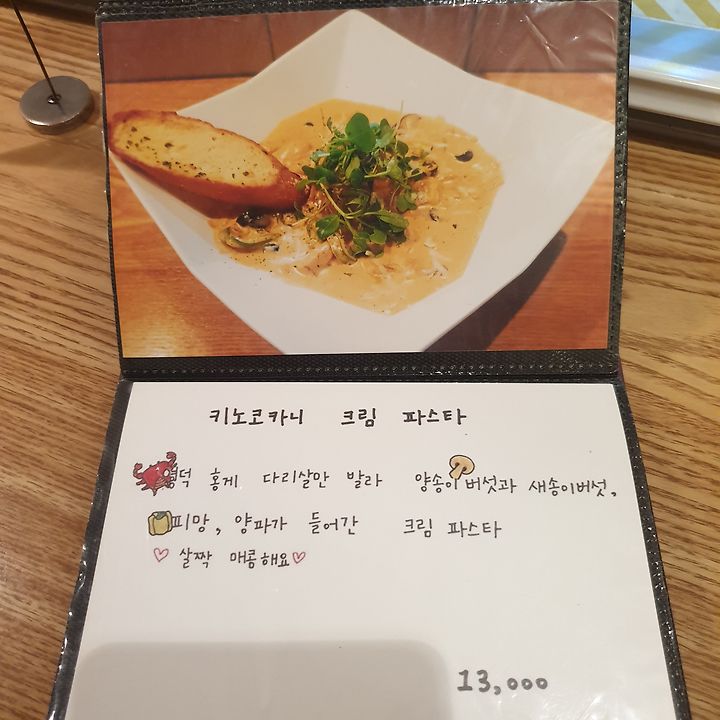 키노코카니 크림 파스타
영덕 홍게 다리살만 발라 양송이버섯과 새송이버섯,
피망, 양파가 들어간 크림 파스타
♡ 살짝 매콤해요♡
13,000